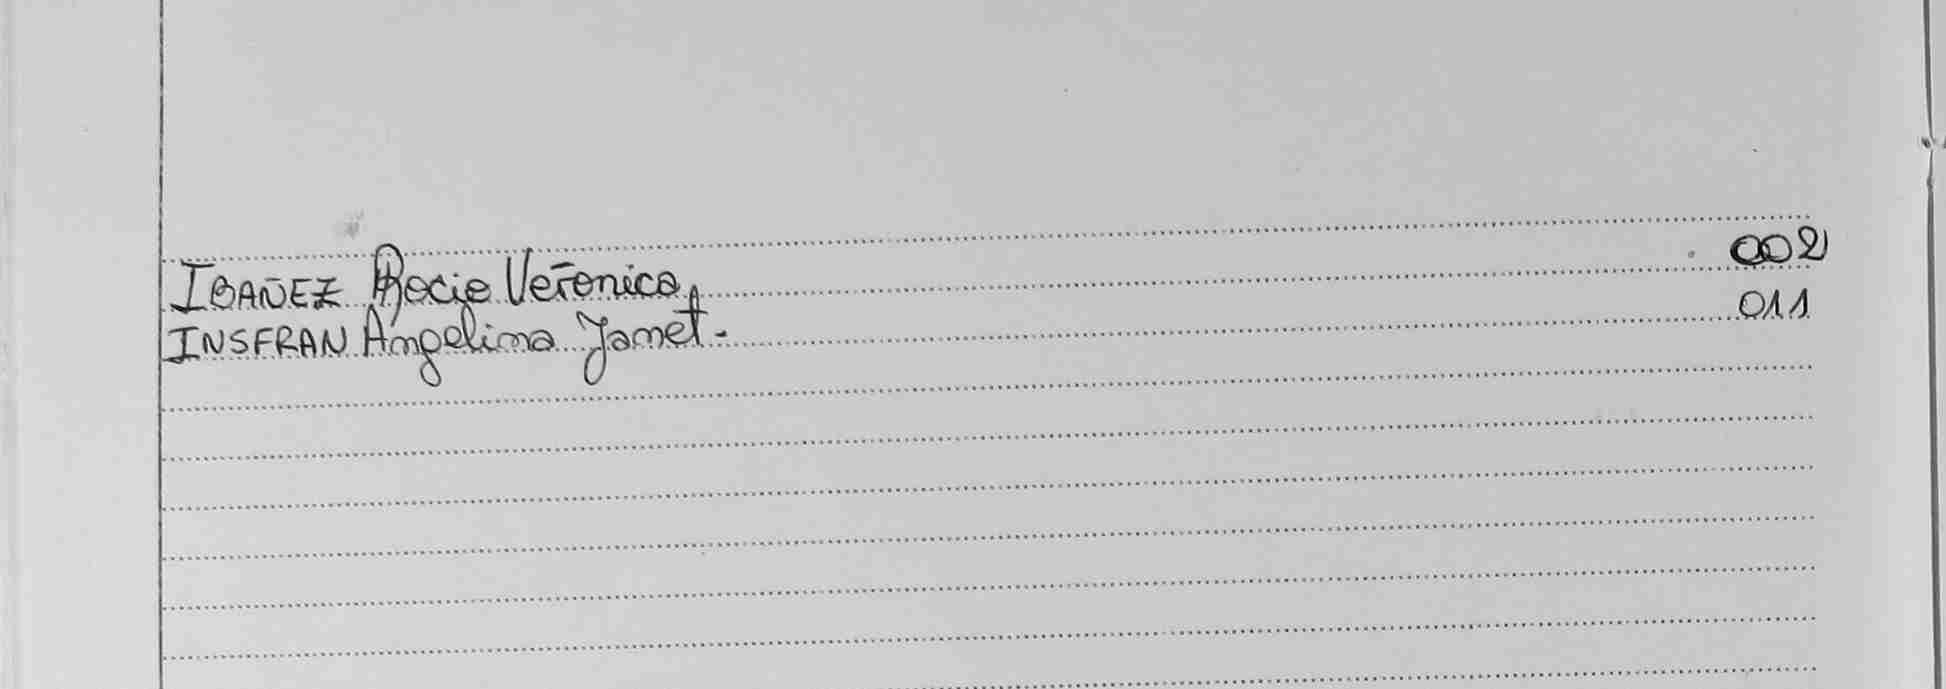 IBAÑEZ Rocio Veronica 002
INSFRAN Angelina Yanet - 011